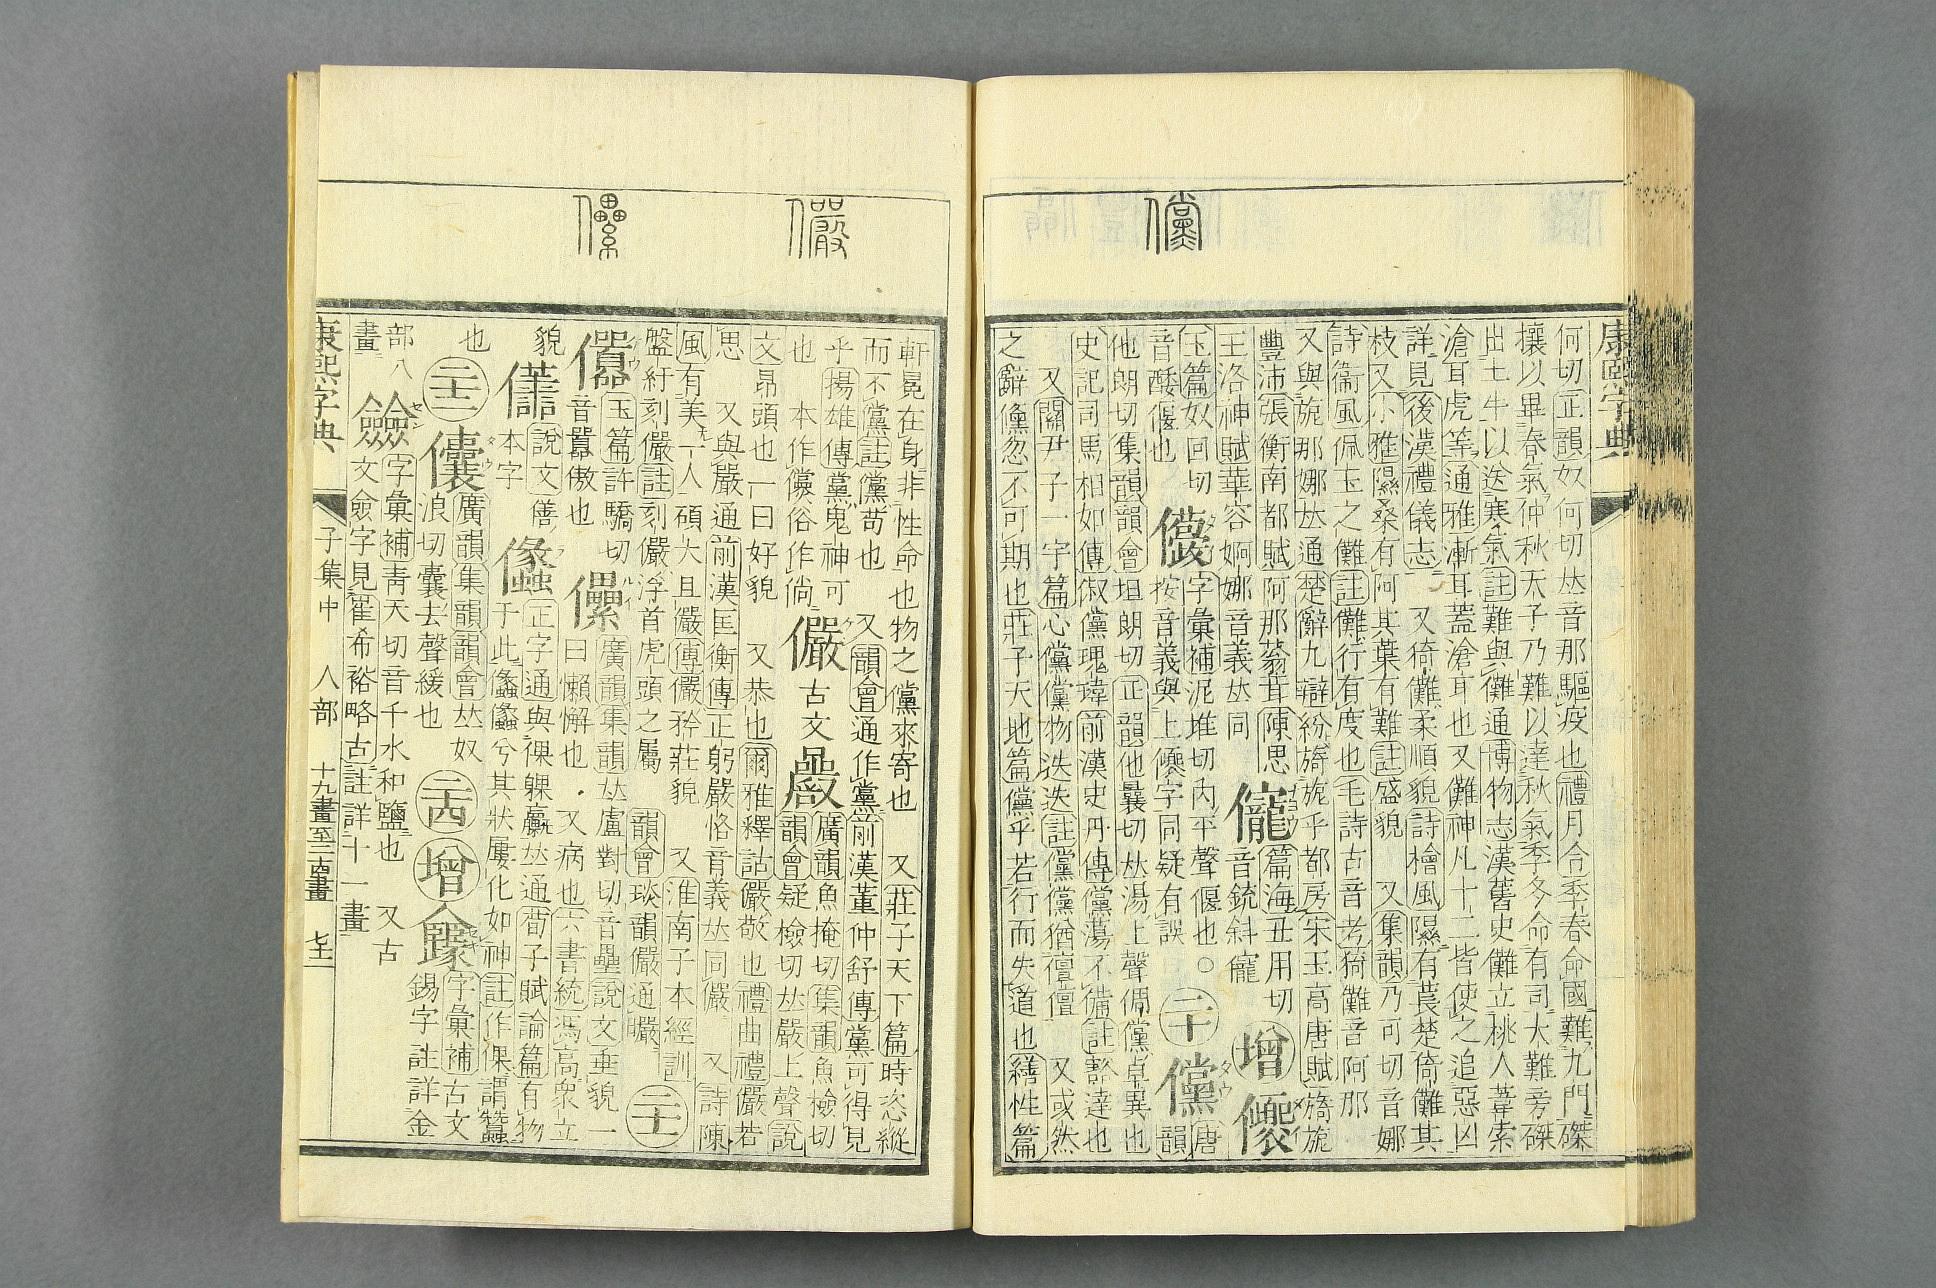 儻
何切正韻奴何切𠀤音那驅疫也禮月令季春命國難九門磔
攘以畢春氣仲秋天子乃難以達秋氣季冬命有司大難旁磔
出土牛以送寒氣註難與儺通博物志漢舊史儺立桃人葦索
滄耳虎等通雅漸耳蓋滄耳也又儺神凡十二皆使之追惡凶
詳見後漢禮儀志 又猗儺柔順貌詩檜風隰有萇楚猗儺其
枝又小雅隰桑有阿其葉有難註盛貌 又集韻乃可切音娜
詩衞風佩玉之儺註儺行有度也毛詩古音考猗儺音阿那
又與旎那娜𠀤通楚辭九辯紛旖旎乎都房宋玉高唐賦旖旎
豐沛張衡南都賦阿那蓊茸陳思
王洛神賦華容婀娜音義𠀤同
儱篇海丑用切音銃斜儱
增
玉篇奴回切
字彙補泥堆切內平聲偃也
音餧偃也 按音義與上字同疑有誤
二十
儻唐韻
他朗切集韻韻會坦朗切正韻他曩切𠀤湯上聲倜儻卓異也
史記司馬相如傳俶儻瑰瑋前漢史丹傳儻蕩不備註豁達也
又關尹子一字篇心儻儻物迭迭註儻儻猶亶亶 又或然
之辭儵忽不可期也莊子天地篇儻乎若行而失道也繕性篇
康熙字典
儼
儽
軒冕在身非性命也物之儻來寄也 又莊子天下篇時恣縱
而不儻註儻苟也 又韻會通作黨前漢董仲舒傳黨可得見
乎揚雄傳黨鬼神可
也 本作儻俗作倘
儼古文曮廣韻魚掩切集韻魚檢切
韻會疑檢切𠀤嚴上聲說
文昂頭也一曰好貌 又恭也爾雅釋詁儼敬也禮曲禮儼若
思 又與嚴通前漢匡衡傳正躬嚴恪音義𠀤同儼 又詩陳
風有美一人碩大且儼傳儼矜莊貌 又淮南子本經訓
盤紆刻儼註刻儼浮首虎頭之屬 韻會琰韻儼通曮
二十一
玉篇許驕切
音囂傲也
儽廣韻集韻𠀤盧對切音壘說文垂貌一
曰懶懈也 又病也六書統馮高衆立
貌
說文僐
本字
正字通與倮躶臝𠀤通荀子賦論篇有物
于此儽儽兮其狀屢化如神註作倮謂蠶
也
二十二
儾廣韻集韻韻會𠀤奴
浪切囊去聲緩也
二十四
增
字彙補古文
錫字註詳金
部八
畫
龡字彙補靑天切音千水和鹽也 又古
文僉字見崔希裕略古註詳十一畫
康熙字典 子集中 人部 十九畫至二十四畫 七十二